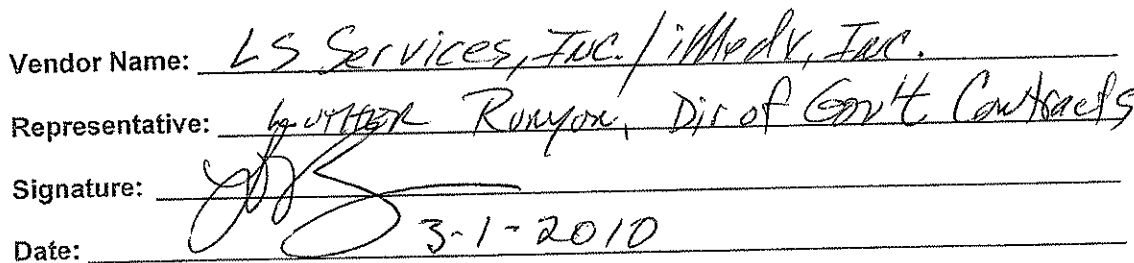 Vendor Name: LS Services, Inc. / iMedx, Inc.
Representative: Luther Runyon, Dir of Gov't Contracts
Signature:
Date: 3-1-2010